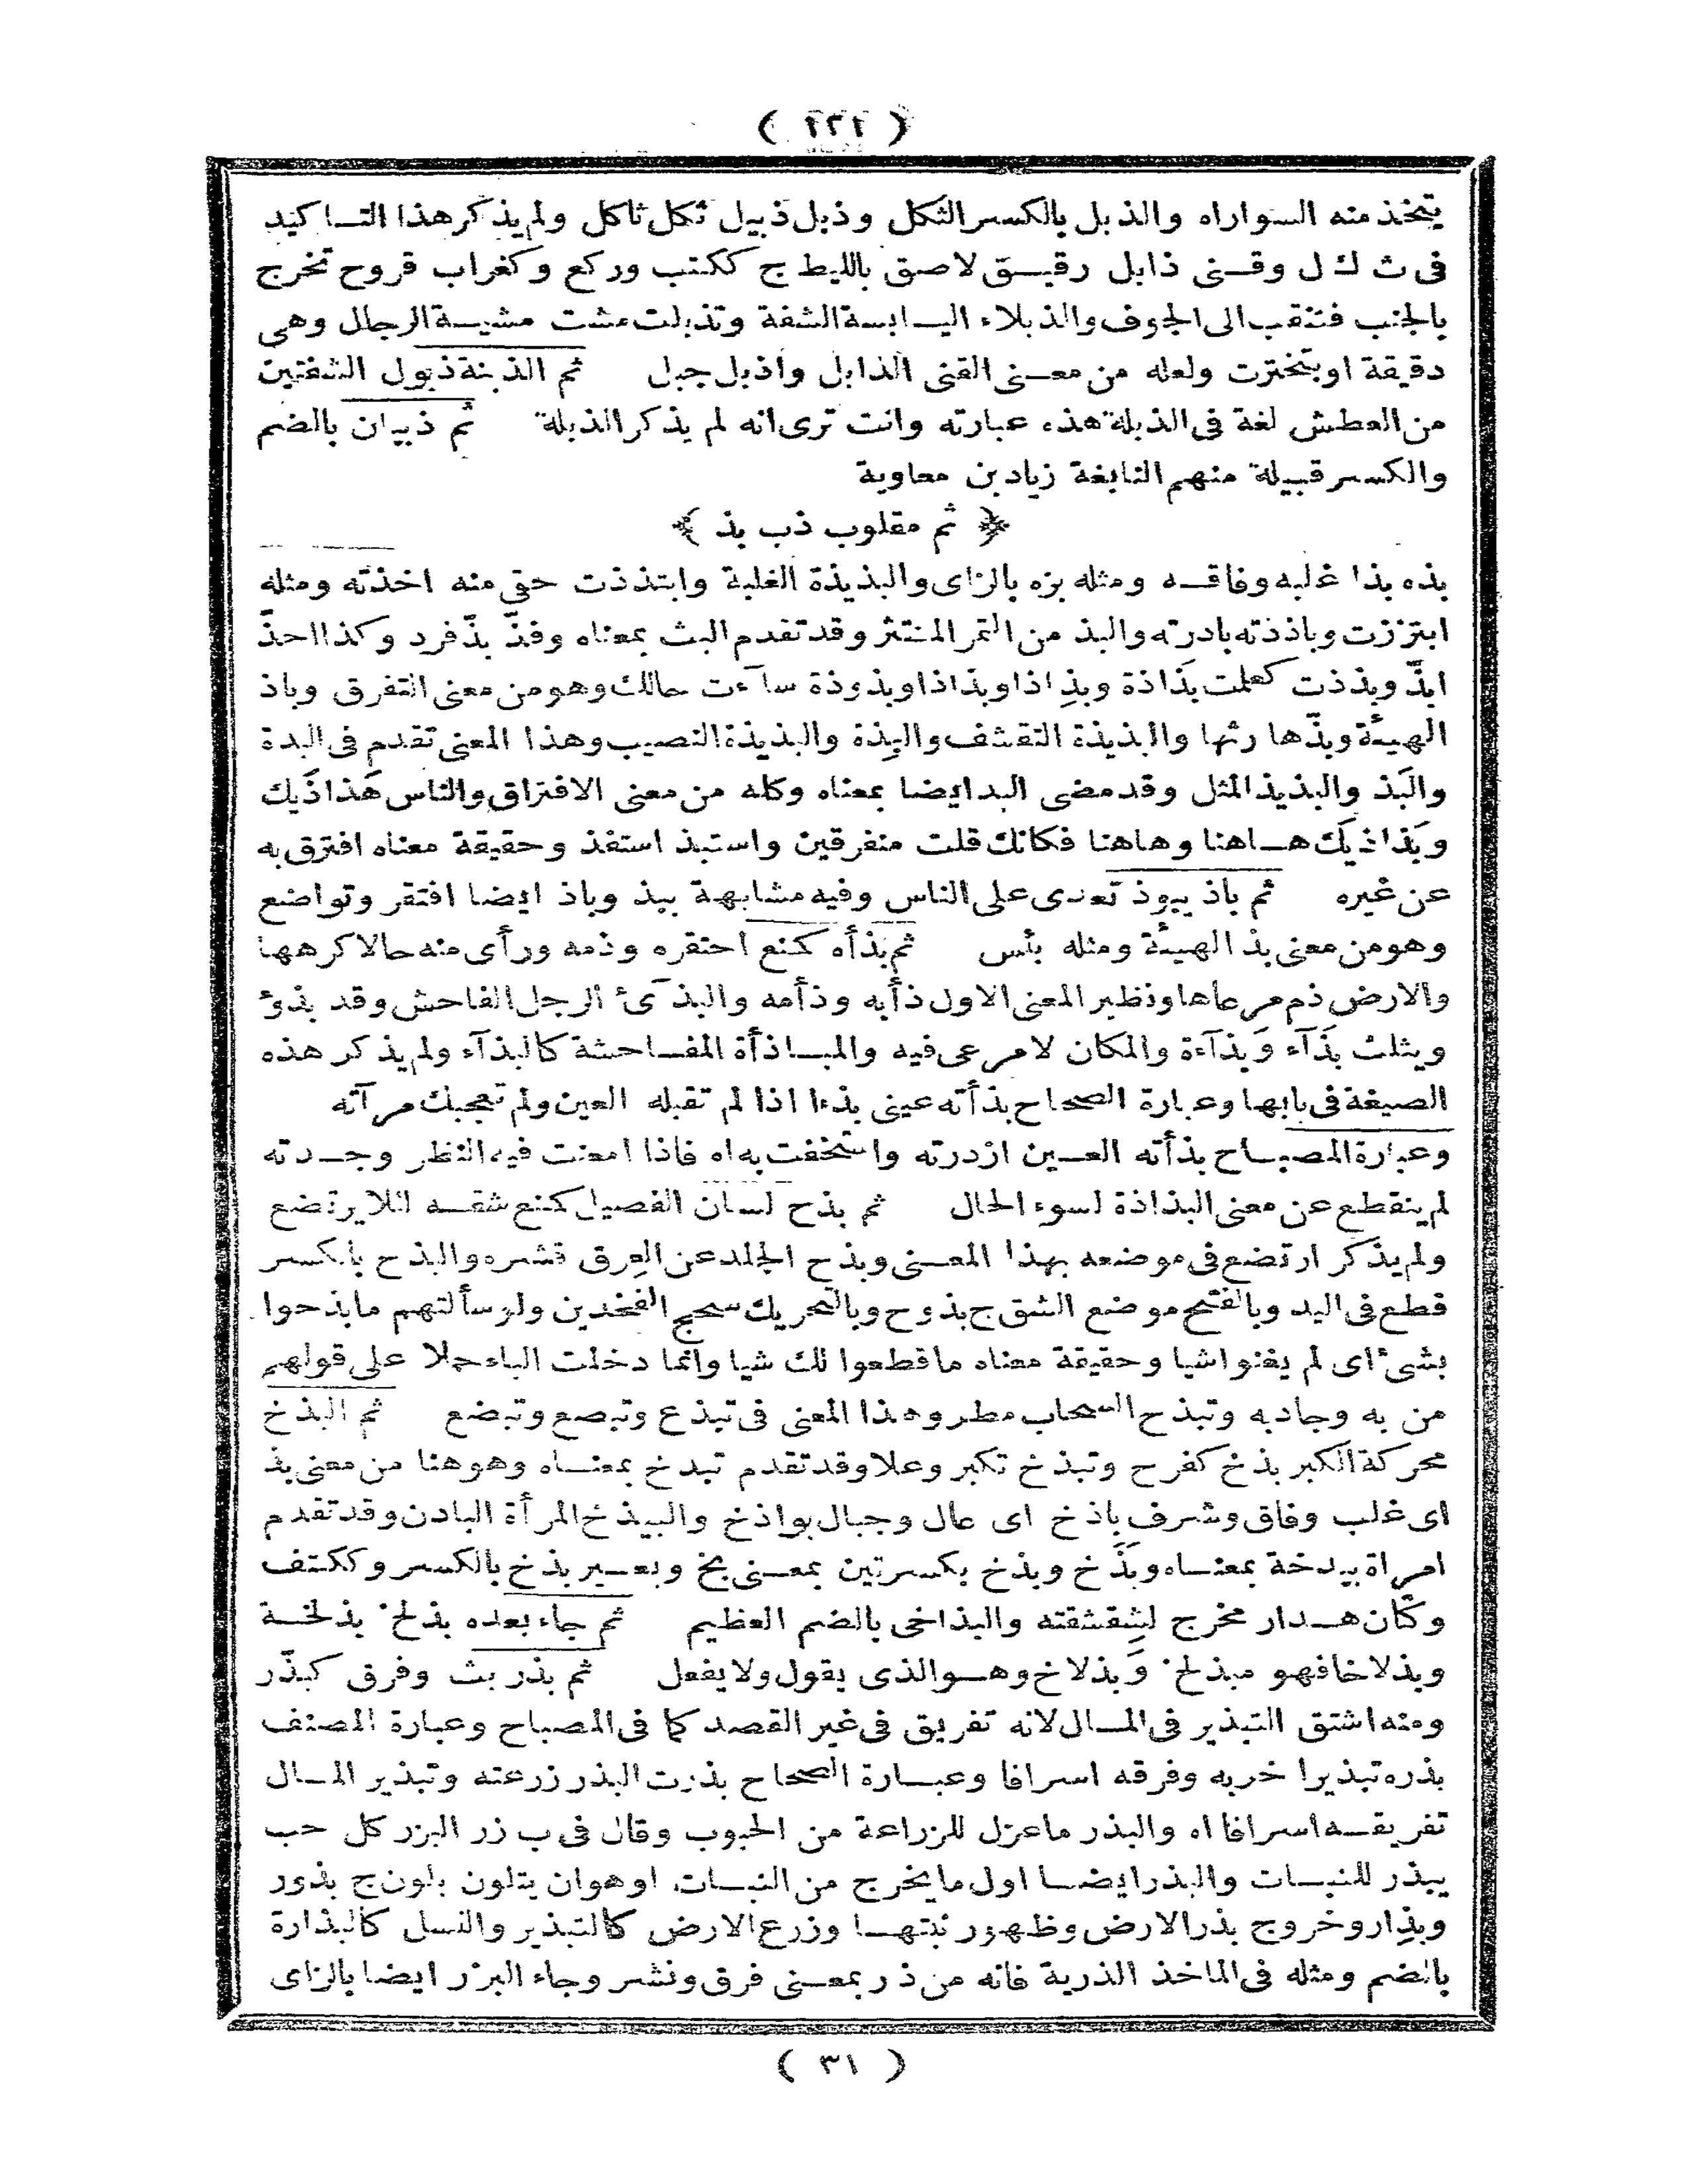 ( ٢٢١ )
يتخذ منه السواراه والذبل بالكسر الثكل وذبل ذبيل ثكل ثاكل ولم يذكر هذا التاكيد
فى ث ك ل وقنى ذابل رقيق لاصق بالليط ج ككتب وركع وكغراب قروح تخرج
بالجنب فتنقب الى الجوف والذبلاء اليابسة الشفة وتذبلت مشت مشية الرجال وهى
دقيقة او تبخترت ولعله من معنى القنى الذابل واذبل جبل ثم الذبنة ذبول الشفتين
من العطش لغة فى الذبلة هذه عبارته وانت ترى انه لم يذكر الذبلة ثم ذبيان بالضم
والكسر قبيلة منهم النابغة زياد بن معاوية
﴿ ثم مقلوب ذب بذ ﴾
بذه بذا غلبه وفاقه ومثله بزه بالزاى والبذيذة الغلبة وابتذذت حقى منه اخذته ومثله
ابتززت وباذذته بادرته والبذ من التمر المنتثر وقد تقدم البث بمعناه وفذّ بذّ فرد وكذا احذّ
ابذّ وبذذت كعلمت بَذاذة وبذِاذا وبذاذا وبذوذة سآءت حالك وهو من معنى التفرق وباذ
الهيئة وبذّها رثها والبذيذة التقشف والبِذة والبذيذة النصيب وهذا المعنى تقدم فى البدة
والبَذ والبذيذ المثل وقد مضى البد ايضا بمعناه وكله من معنى الافتراق والناس هَذاذَيك
وبَذاذيك هاهنا وهاهنا فكانك قلت متفرقين واستبذ استفذ وحقيقة معناه افترق به
عن غيره ثم باذ يبوذ تعدى على الناس وفيه مشابهة ببذ وباذ ايضا افتقر وتواضع
وهو من معنى بذ الهيئة ومثله بئس ثم بذأه كمنع احتقره وذمه ورأى منه حالا كرهها
والارض ذم مرعاها ونظير المعنى الاول ذأبه وذأمه والبذىء الرجل الفاحش وقد بذؤ
ويثلث بَذَآء وَبذآءة والمكان لا مرعى فيه والمباذأة المفاحشة كالبذآء ولم يذكر هذه
الصيغة فى بابها وعبارة الصحاح بذأته عينى بذءا اذا لم تقبله العين ولم تعجبك مرآته
وعبارة المصباح بذأته العين ازدرته واستخفت به اه فاذا امعنت فيه النظر وجدته
لم ينقطع عن معنى البذاذة لسوء الحال ثم بذح لسان الفصيل كمنع شقه لئلا يرتضع
ولم يذكر ارتضع فى موضعه بهذا المعنى وبذح الجلد عن العرق قشره والبذح بالكسر
قطع فى اليد وبالفتح موضع الشق ج بذوح وبالتحريك سحج الفخذين ولو سألتهم ما بذحوا
بشىء اى لم يغنوا شيا وحقيقة معناه ما قطعوا لك شيا وانما دخلت الباء حملا على قولهم
من به وجاد به وتبذح السحاب مطر وهذا المعنى فى تبذع وتبصع وتبضع ثم البذخ
محركة الكبر بذخ كفرح وتبذخ تكبر وعلا وقد تقدم تبدخ بمعناه وهو هنا من معنى بذ
اى غلب وفاق وشرف باذخ اى عال وجبال بواذخ والبيذخ المرأة البادن وقد تقدم
امراة بيدخة بمعناه وبَذَخ وبذخ بكسرتين بمعنى بخ وبعير بذخ بالكسر وككتف
وكتّان هدار مخرج لشِقشقته والبذاخى بالضم العظيم ثم جاء بعده بذلخ بذلخة
وبذلاخا فهو مبذلخ وَبذلاخ وهو الذى يقول ولا يفعل ثم بذر بث وفرق كبذّر
ومنه اشتق التبذير فى المال لانه تفريق فى غير القصد كما فى المصباح وعبارة المصنف
بذره تبذيرا خربه وفرقه اسرافا وعبارة الصحاح بذرت البذر زرعته وتبذير المال
تفريقه اسرافا اه والبذر ما عزل للزراعة من الحبوب وقال فى ب زر البزر كل حب
يبذر للنبات والبذر ايضا اول ما يخرج من النبات او هو ان يتلون بلون ج بذور
وبذِار وخروج بذر الارض وظهور نبتها وزرع الارض كالتبذير والنسل كالبذارة
بالضم ومثله فى الماخذ الذرية فانه من ذر بمعنى فرق ونشر وجاء البزر ايضا بالزاى
( ٣١ )